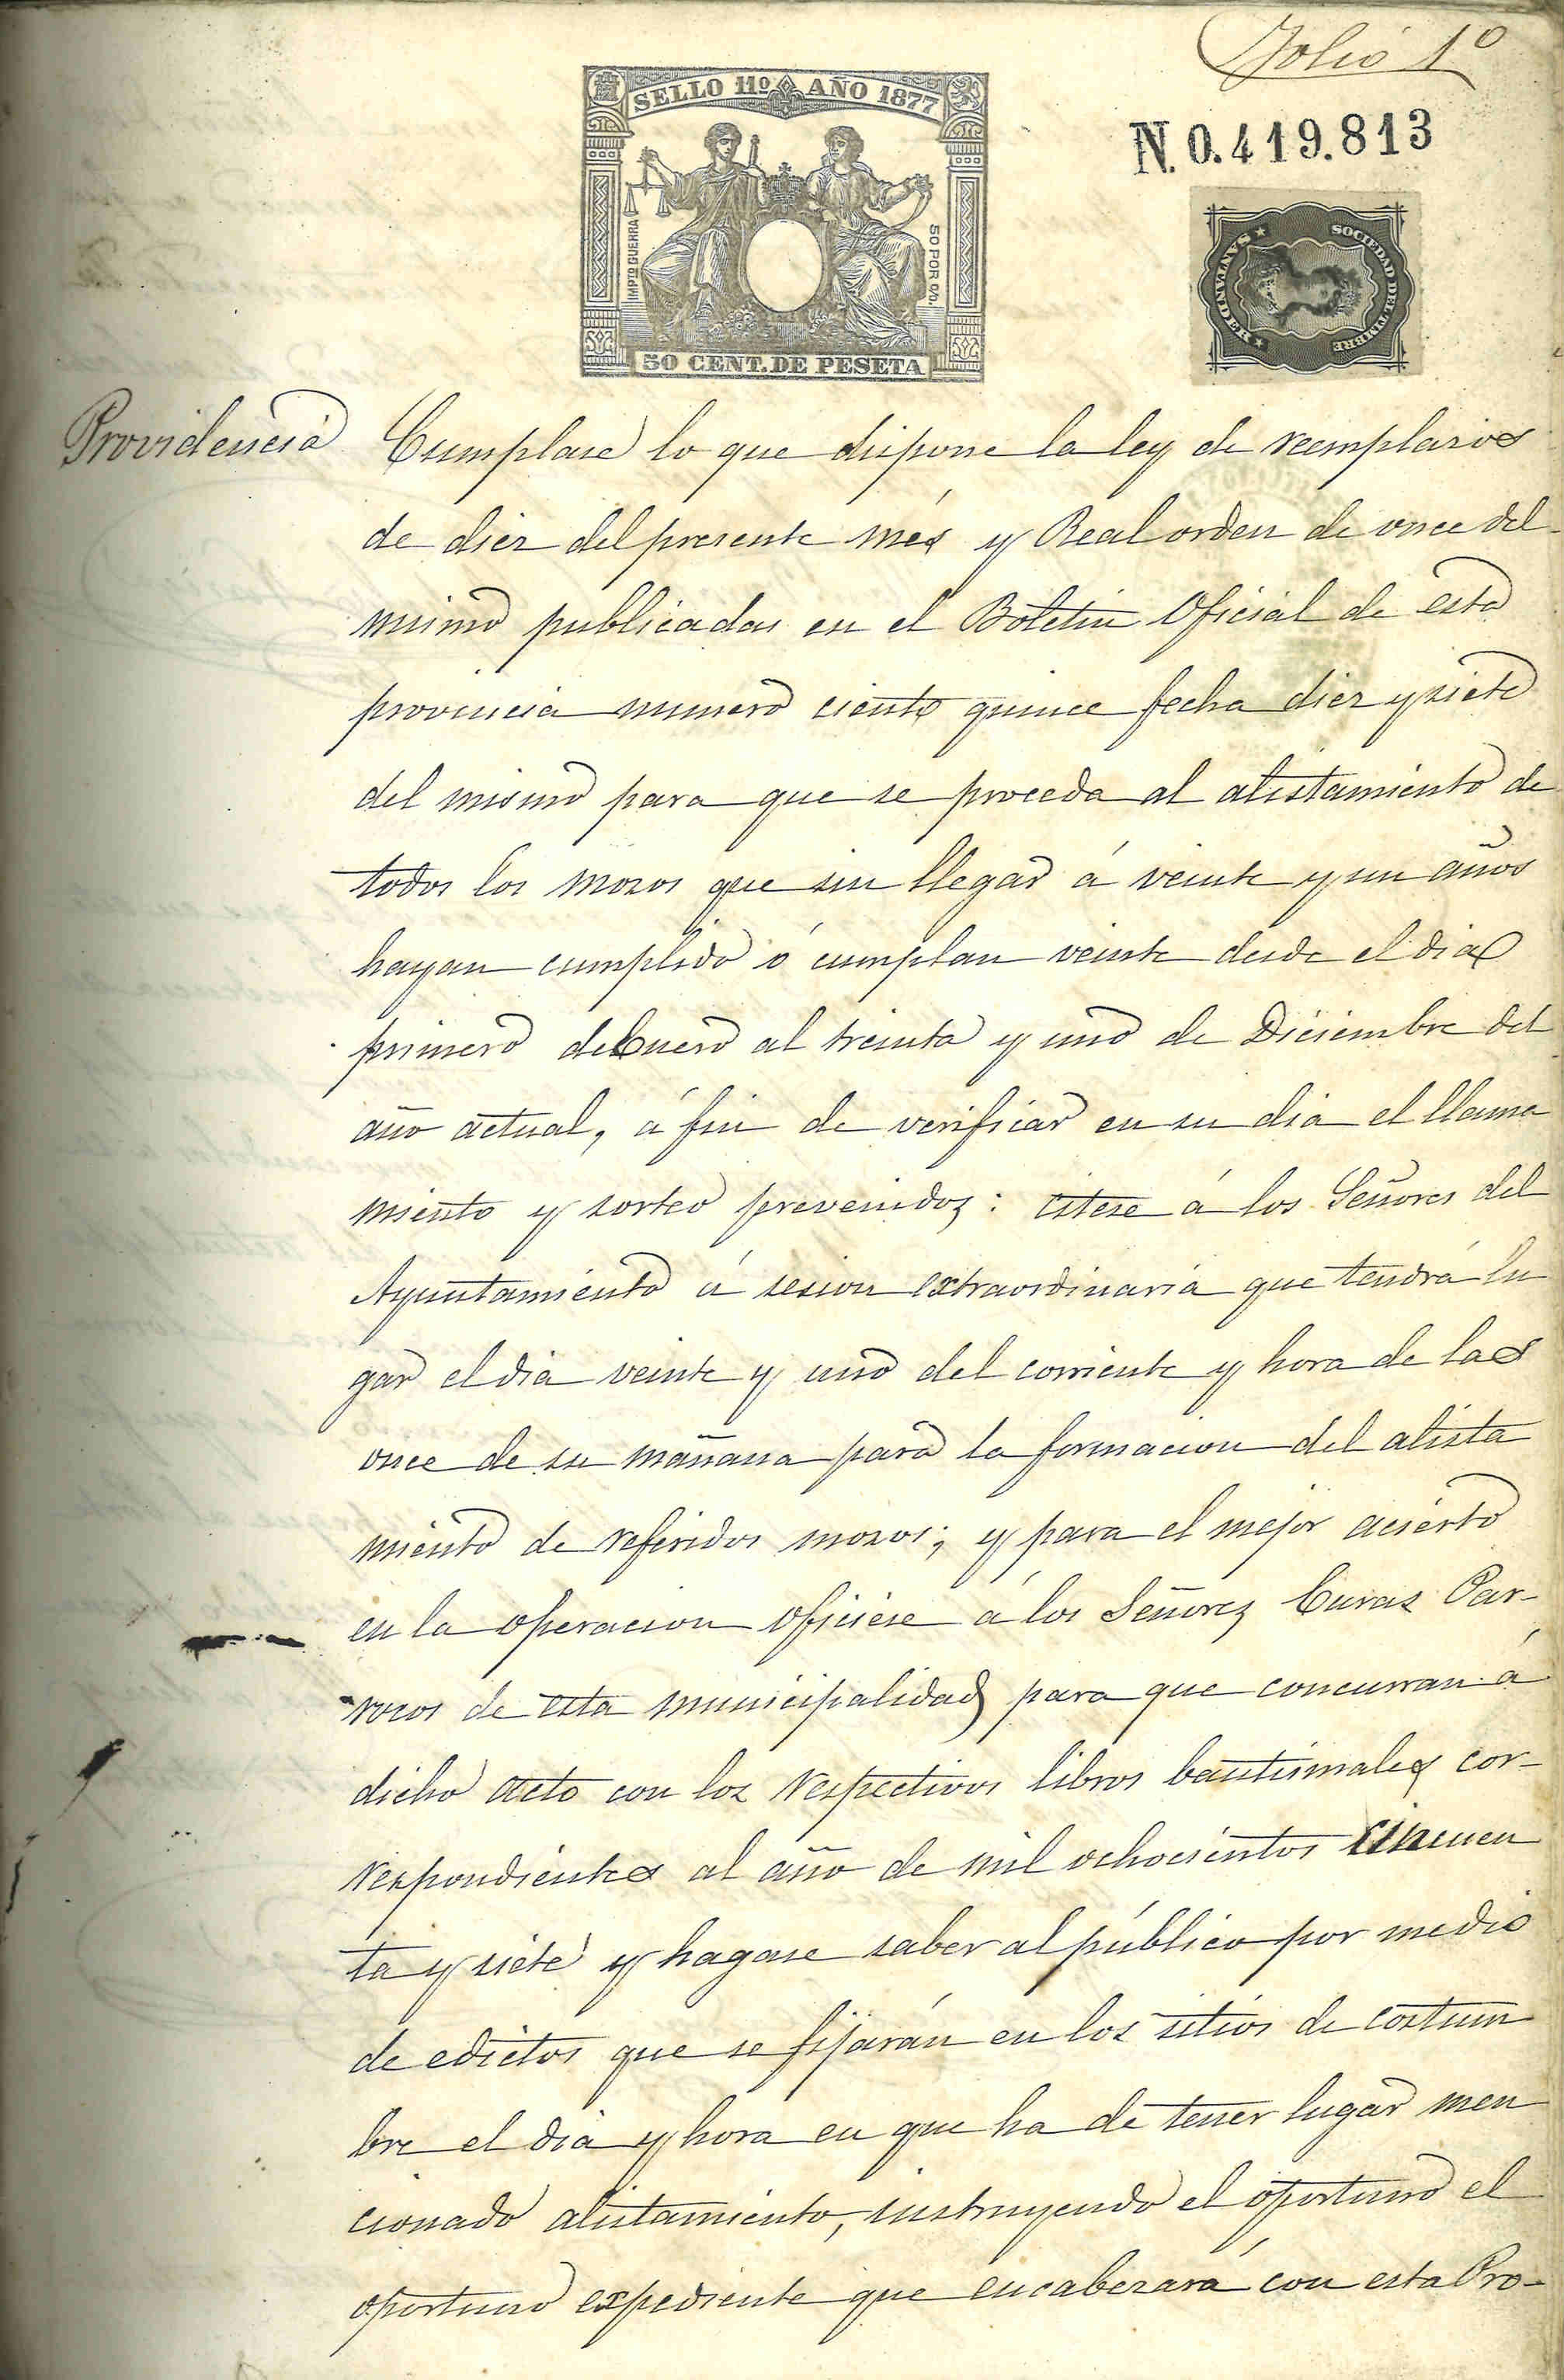 Folio 1º
SELLO 11º AÑO 1877
N. 0.419.813
IMPTO GUERRA
50 POR C/O.
50 CENT. DE PESETA
SOCIEDAD DEL TIMBRE
SANTANDER
Providencia
Cumplase lo que dispone la ley de reemplazos
de diez del presente més y Real orden de once del
mismo publicadas en el Boletin Oficial de esta
provincia numero ciento quince fecha diez y siete
del mismo para que se proceda al alistamiento de
todos los mozos que sin llegar á veinte y un años
hayan cumplido ó cumplan veinte desde el dia
primero de Enero al treinta y uno de Diciembre del
año actual, á fin de verificar en su dia el llama
miento y sorteo prevenidos: citese á los Señores del
Ayuntamiento á sesion extraordinaria que tendrá lu
gar el dia veinte y uno del corriente y hora de las
once de su mañana para la formacion del alista
miento de referidos mozos; y para el mejor acierto
en la operacion oficiese á los Señores Curas Par-
rocos de esta municipalidad para que concurran á
dicho acto con los respectivos libros bautismales cor-
respondientes al año de mil ochocientos cincuen
ta y siete y hagase saber al público por medio
de edictos que se fijarán en los sitios de costum
bre el dia y hora en que ha de tener lugar men
cionado alistamiento, instruyendo el oportuno el
oportuno expediente que encabezará con esta Pro-